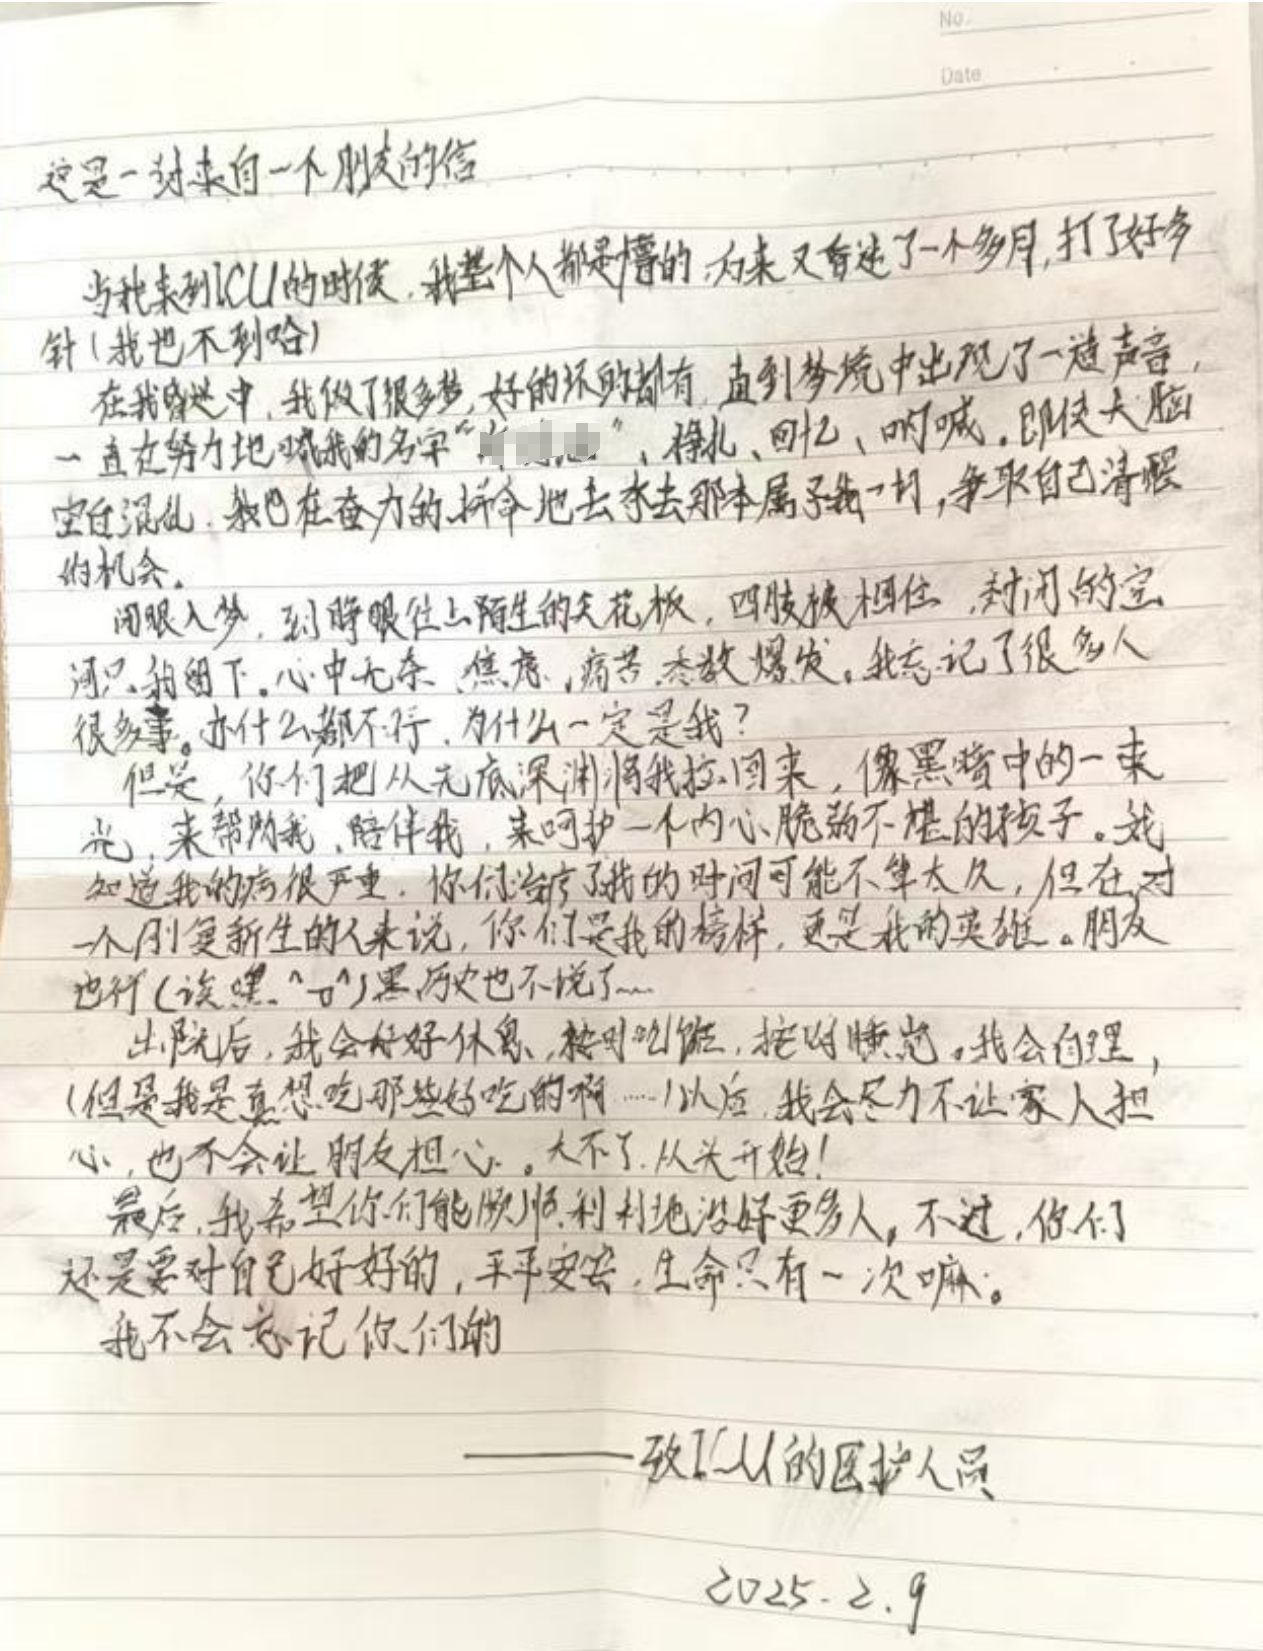 No.
Date
这是一封来自一个朋友的信
当我来到ICU的时候，我整个人都是懵的，后来又昏迷了一个多月，打了好多
针（我也不到哈）
在我昏迷中，我做了很多梦，好的坏的都有，直到梦境中出现了一道声音，
一直在努力地喊我的名字“ ”、挣扎、回忆、呐喊。即使大脑
空白混乱，我也在奋力的拼命地去夺去那本属于我一切，争取自己清醒
的机会。
闭眼入梦，到睁眼往上陌生的天花板，四肢被捆住，封闭的空
间只我留下。心中无奈、焦虑、痛苦、悉数爆发。我忘记了很多人
很多事。办什么都不行，为什么一定是我？
但是，你们把从无底深渊将我拉回来，像黑暗中的一束
光，来帮助我，陪伴我，来呵护一个内心脆弱不堪的孩子。我
知道我的病很严重，你们治疗了我的时间可能不算太久，但在对
一个刚复新生的人来说，你们是我的榜样，更是我的英雄。朋友
也行（诶嘿 ^口^）黑历史也不说了……
出院后，我会好好休息，按时吃饭，按时睡觉。我会自理，
（但是我是真想吃那些好吃的啊……）以后，我会尽力不让家人担
心，也不会让朋友担心。大不了，从头开始！
最后，我希望你们能顺顺利利地治好更多人。不过，你们
还是要对自己好好的，平平安安，生命只有一次嘛。
我不会忘记你们的
——致ICU的医护人员
2025.2.9